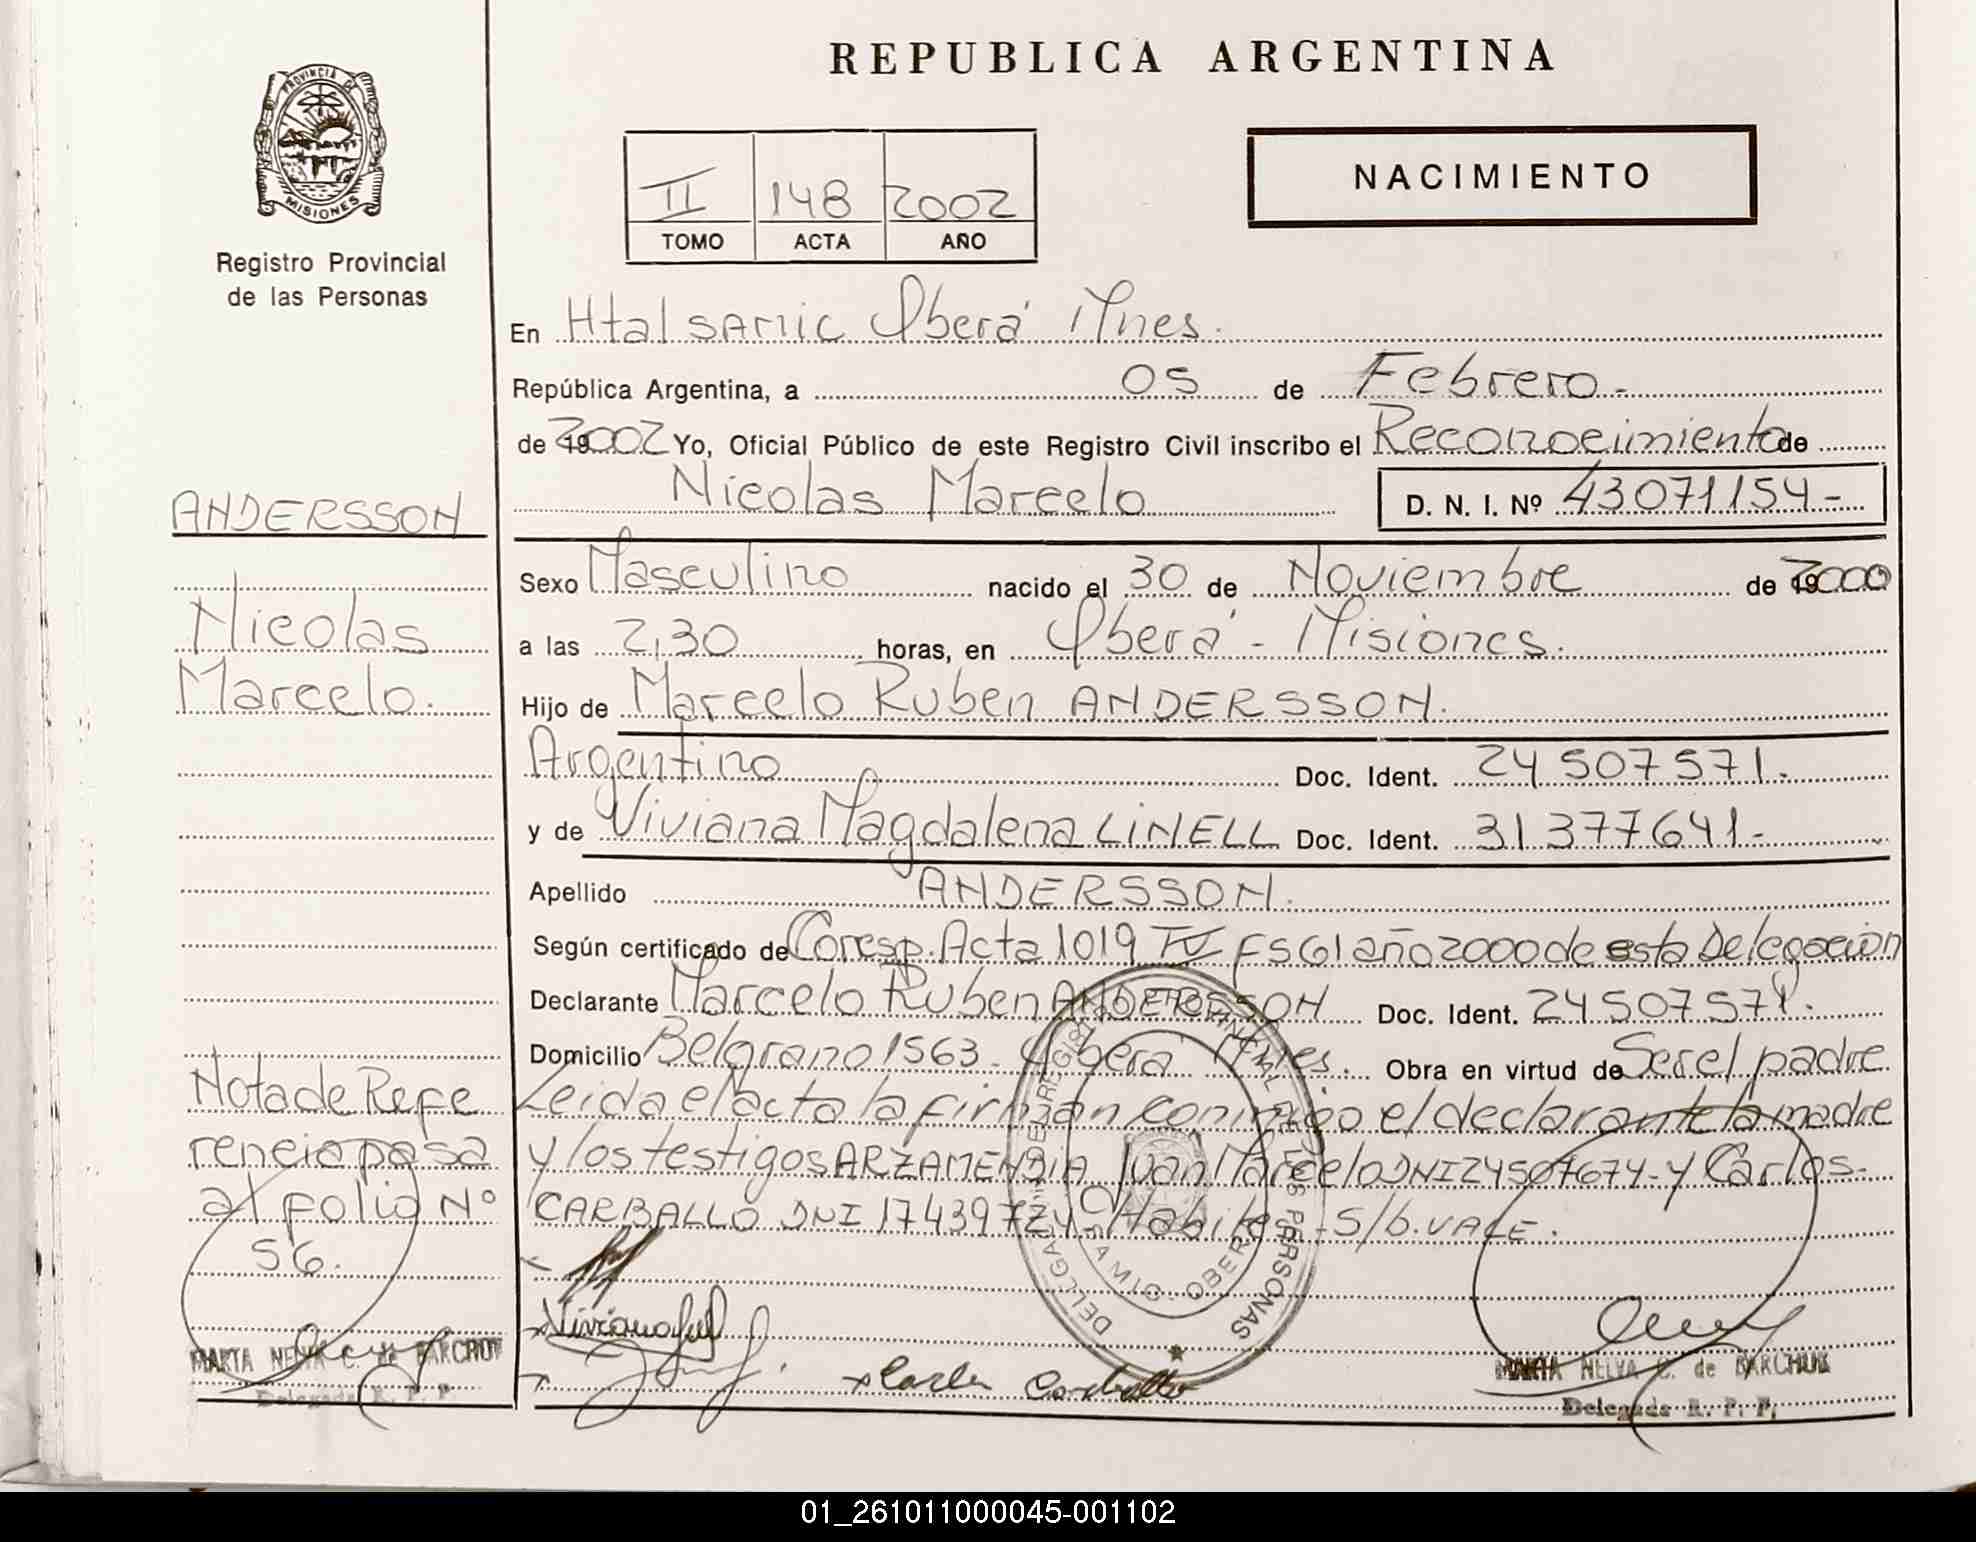 REPUBLICA ARGENTINA
PROVINCIA DE
MISIONES
Registro Provincial
de las Personas
II 148 2002
TOMO ACTA AÑO
NACIMIENTO
En Htal SAMIC Oberá Mnes.
República Argentina, a 05 de Febrero.-
de 2002 Yo, Oficial Público de este Registro Civil inscribo el Reconocimiento de
Nicolas Marcelo D. N. I. Nº 43071154-
ANDERSSON
Nicolas
Marcelo.
Sexo Masculino nacido el 30 de Noviembre de 2000
a las 2,30 horas, en Oberá - Misiones.
Hijo de Marcelo Ruben ANDERSSON.
Argentino Doc. Ident. 24507571.
y de Viviana Magdalena LINELL Doc. Ident. 31377641-
Apellido ANDERSSON.
Según certificado de Coresp. Acta 1019 TIV FS61 año 2000 de esta Delegación
Declarante Marcelo Ruben ANDERSSON Doc. Ident. 24507571.
Domicilio Belgrano 1563. Oberá Mnes. Obra en virtud de Ser el padre
Leida el acta la firman conmigo el declarante la madre
y los testigos ARZAMENDIA Juan Marcelo DNI 24507674- y Carlos
CARBALLO DNI 17439724- Habiles -S/b. VALE.
Nota de Refe
rencia pasa
al folio Nº
56.
DELEGACIÓN DEL REGISTRO PROVINCIAL DE LAS PERSONAS
OBERÁ
Carlos Carballo
MARTA NELVA C. de BARCHUK
Delegada R. P. P.
MARTA NELVA C. de BARCHUK
Delegada R. P. P.
01_261011000045-001102